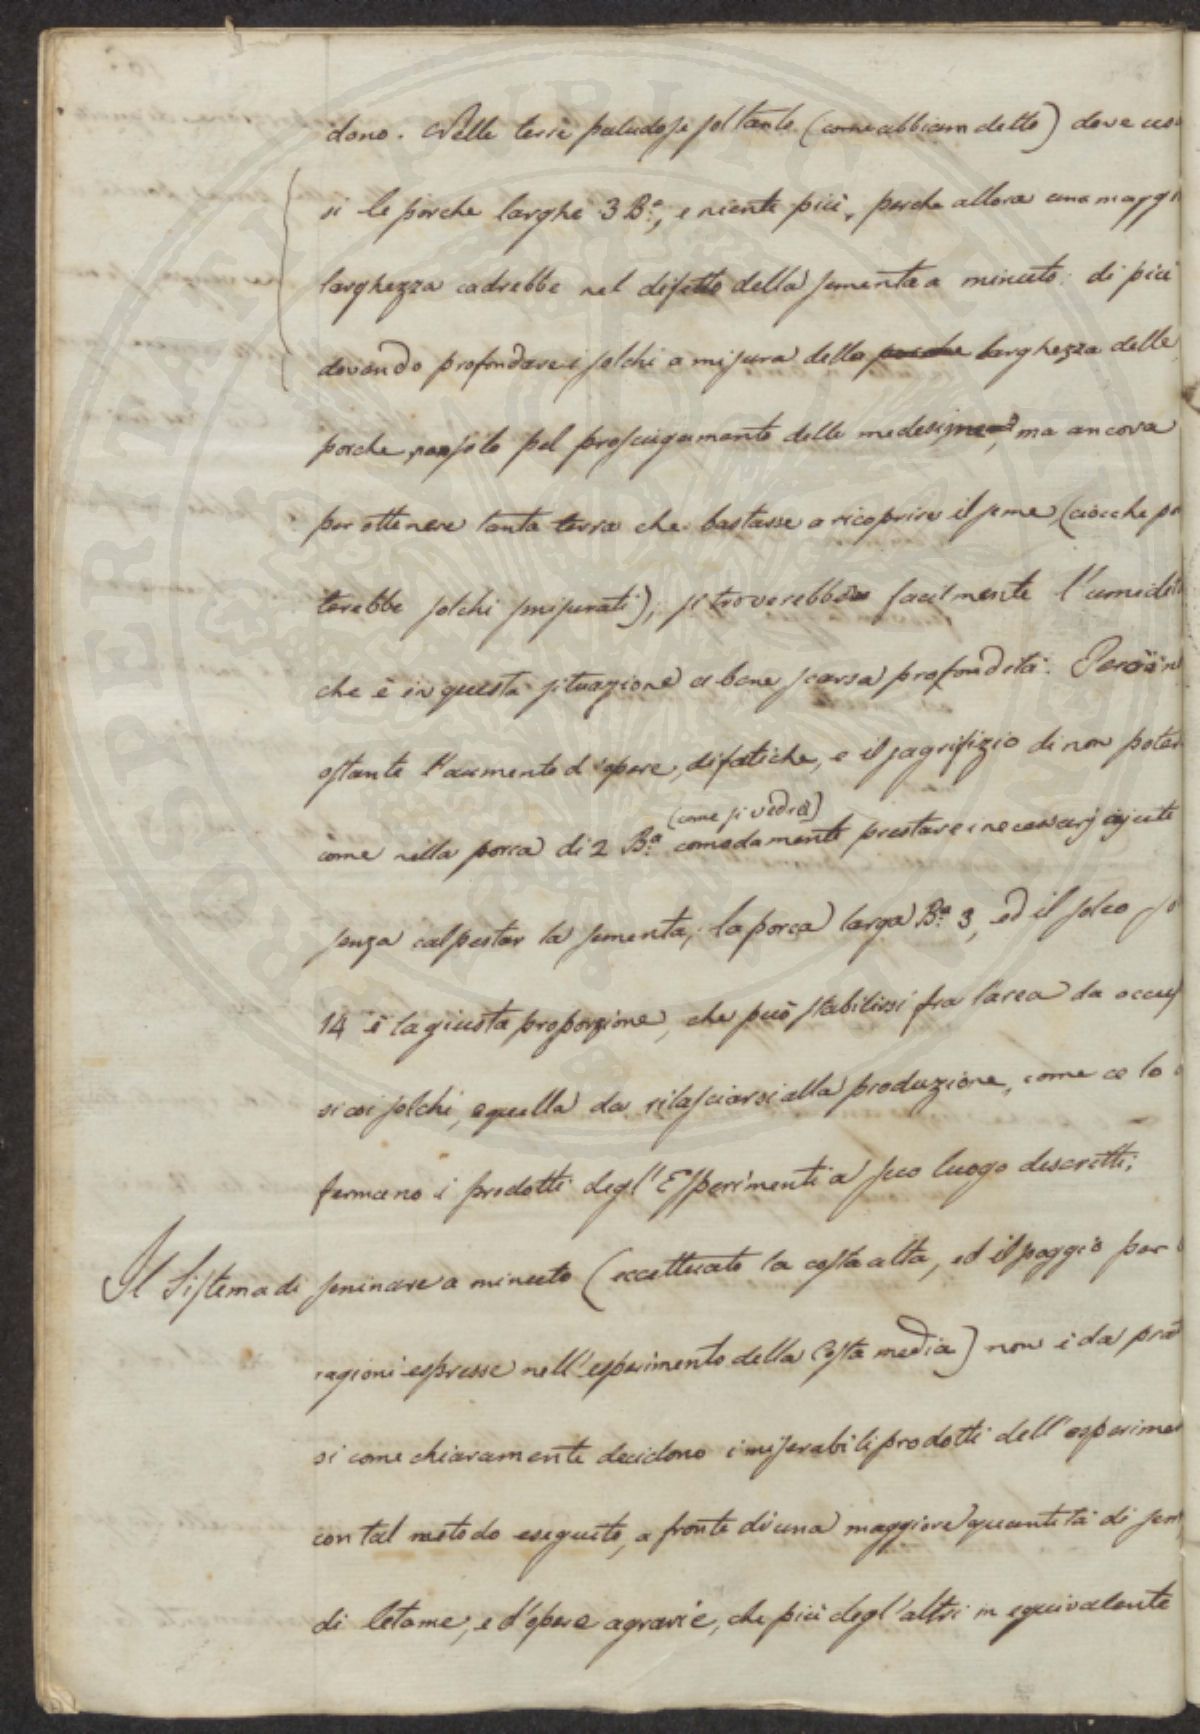 dono. Nelle terre paludose soltanto (come abbiam detto) deve
si le porche larghe 3 B.ª, e niente più, perche allora una maggi
larghezza cadrebbe nel difetto della sementa a minuto: di più
dovendo profondare i solchi a misura della porche larghezza delle
porche, non solo pel prosciugamento delle medesime, ma ancora
per ottenere tanta terra che bastasse a ricoprire il seme (ciocche po
terebbe solchi smisurati), si troverebbe facilmente l'umidità
che è in questa situazione a bene scarsa profondità. Perciò
ostante l'aumento d'opere, di fatiche, e il sagrifizio di non poter
(come si vedrà)
come nella porca di 2 B.ª comodamente prestare i necessarj ajuti
senza calpestar la sementa, la porca larga B.ª 3, ed il solco
14 è la giusta proporzione, che può stabilirsi fra l'area da occup
si coi solchi, e quella da rilasciarsi alla produzione, come ce lo
fermano i prodotti degl'Esperimenti a suo luogo descritti.
Il Sistema di seminare a minuto (eccettuato la costa alta, ed il poggio per
ragioni espresse nell'esperimento della Costa media) non è da prat
si come chiaramente decidono i miserabili prodotti dell'esperimen
con tal metodo eseguito, a fronte di una maggiore quantità di sem
di letame, e d'opere agrarie, che più degl'altri in equivalente